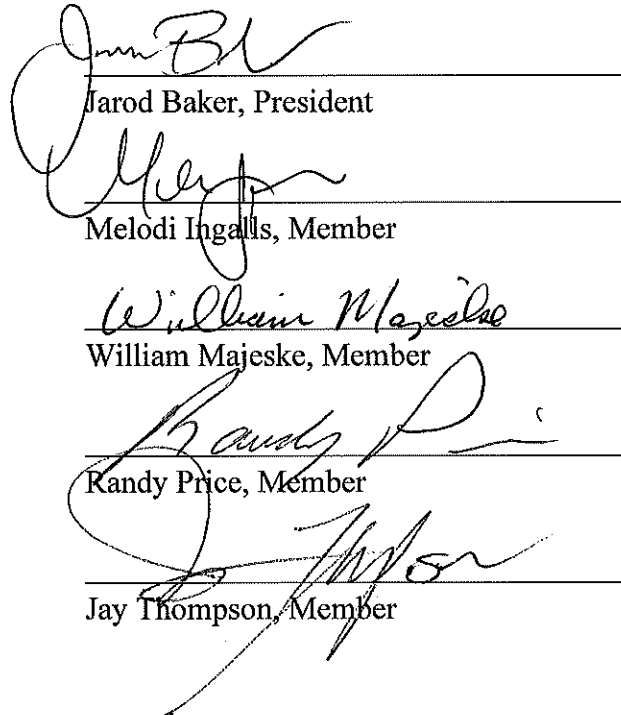 Jarod Baker, President
Melodi Ingalls, Member
William Majeske
William Majeske, Member
Randy Price, Member
Jay Thompson, Member